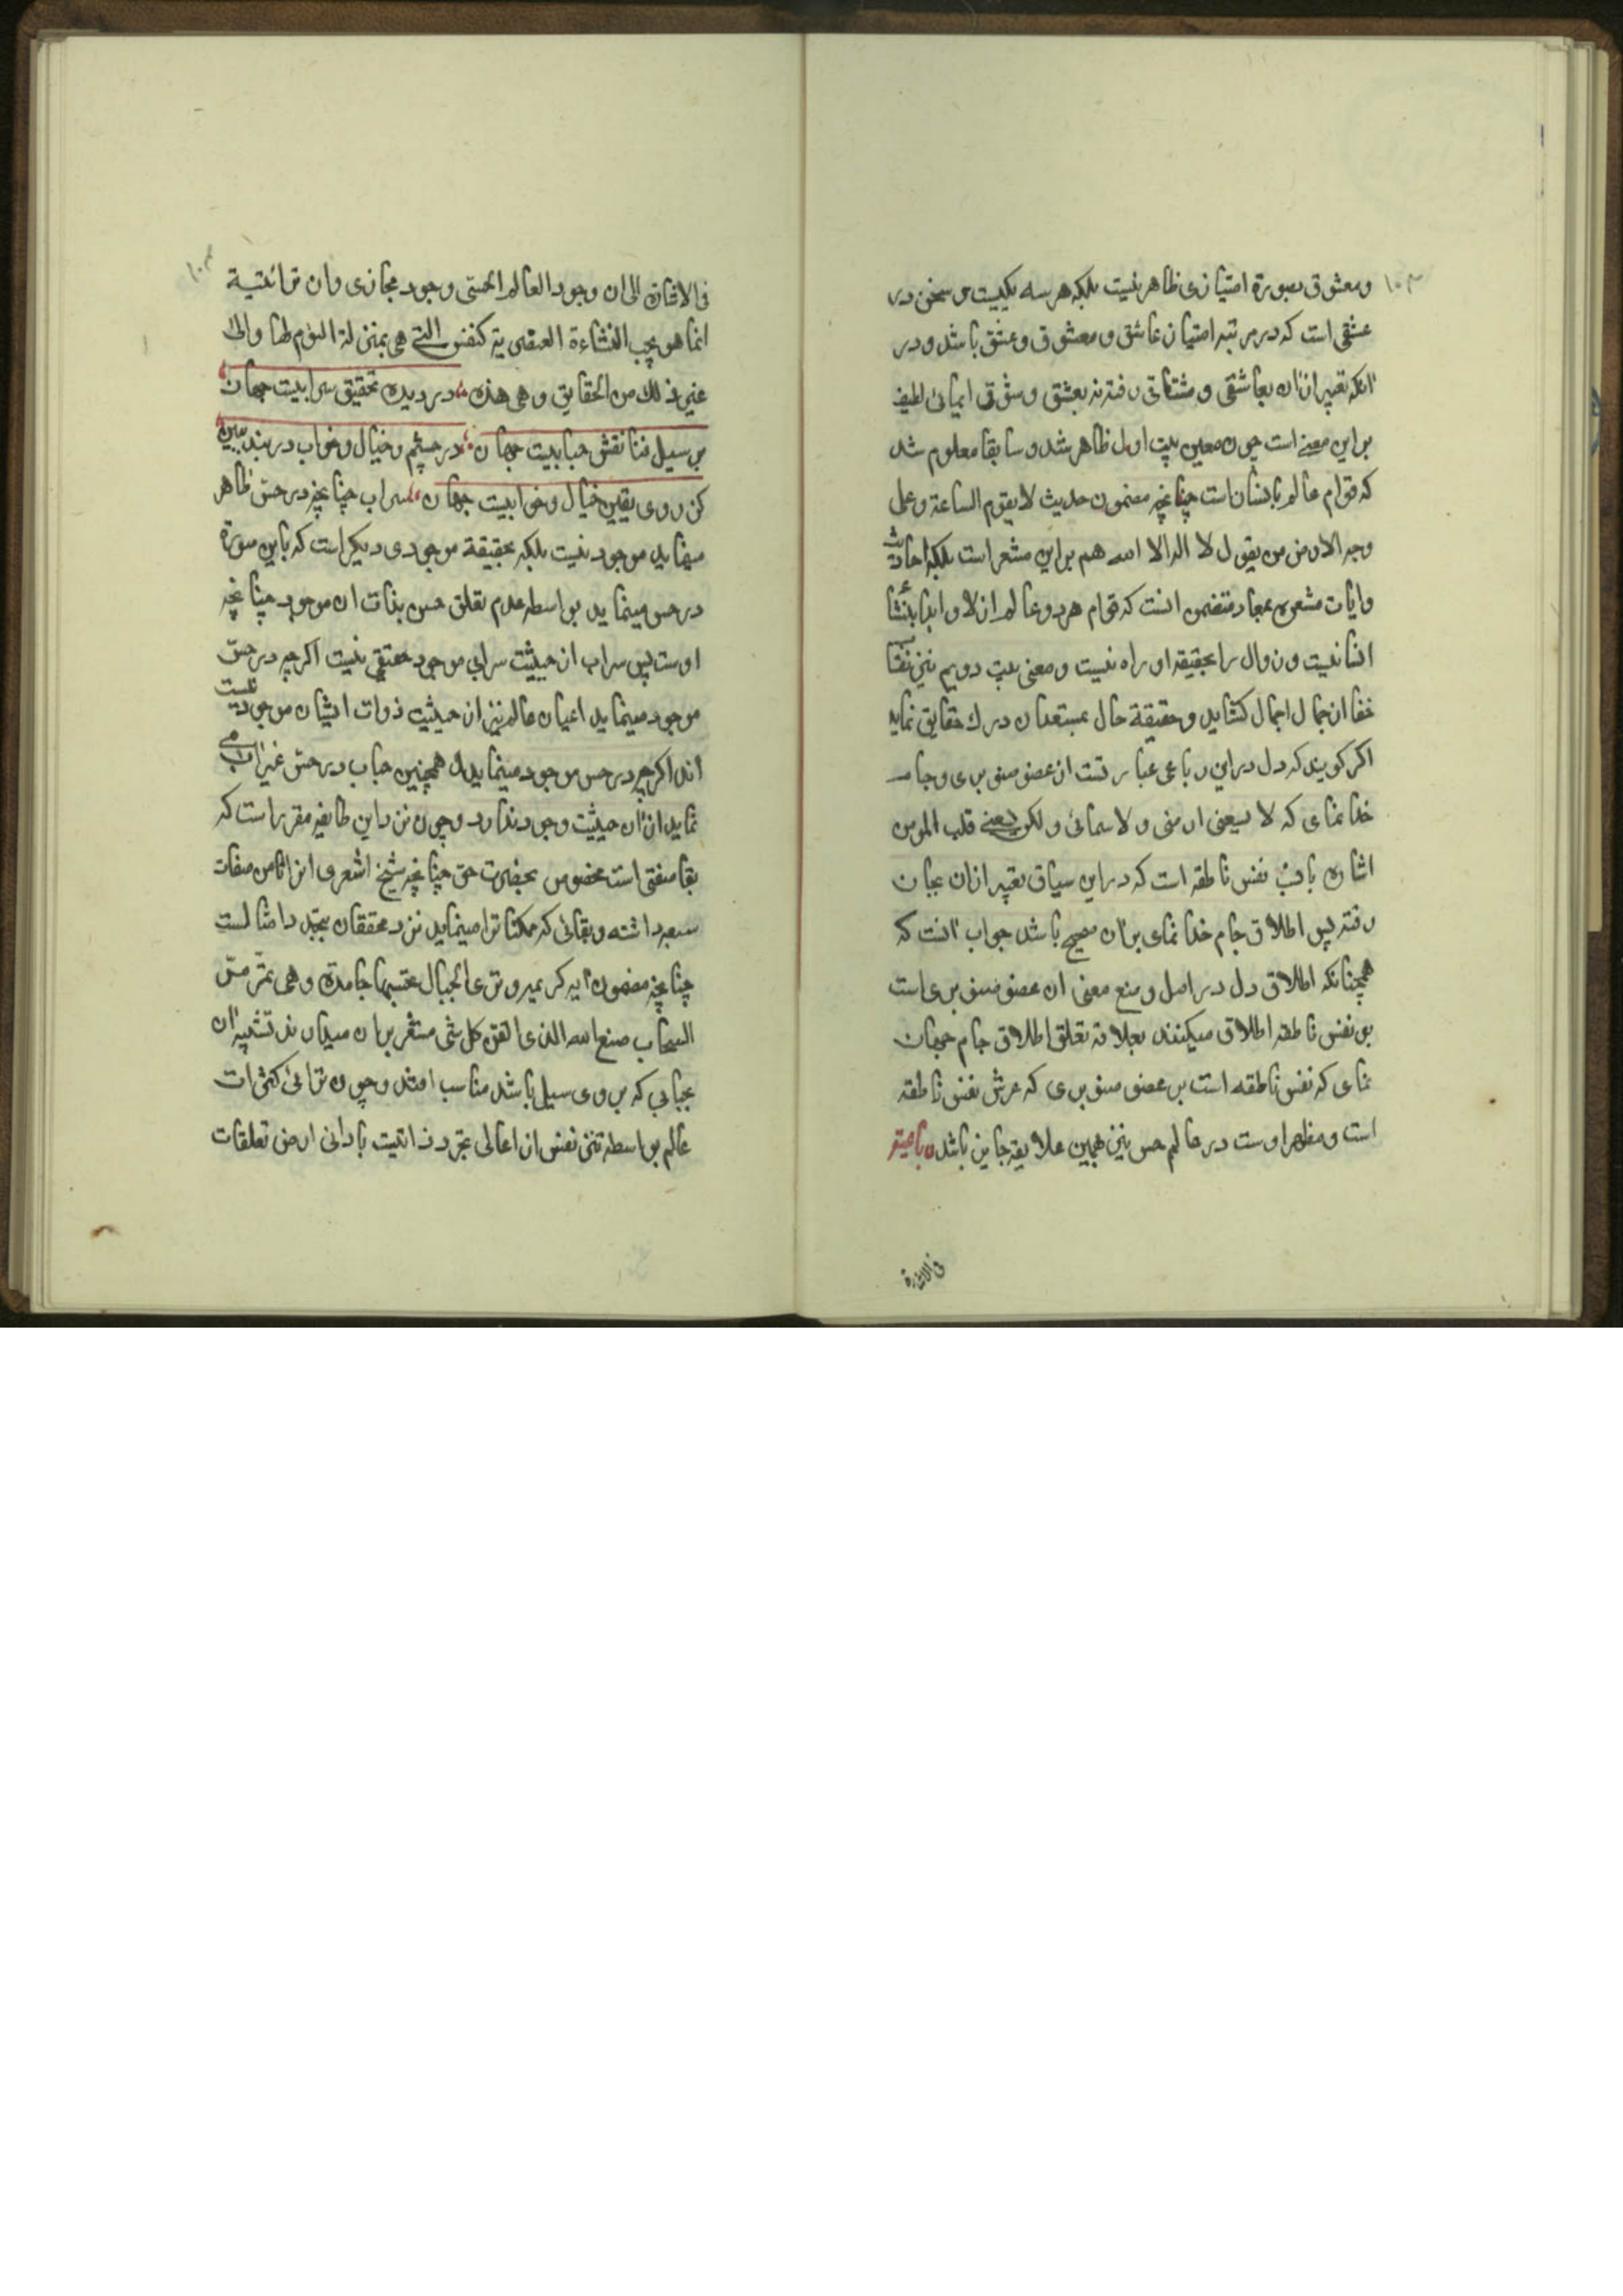 ۱۰۳
ومعشوق بصورة امتیازی ظاهر نیست بلکه هر سه یکیست س سخن در
عشقی است که در مرتبه امتیاز عاشق و معشوق و عشق باشد و در
آنکه تعبیر از ان بعاشقی و مشتاقی رفته نه بعشق و شوق ایمائی لطیف
براین معنے است چون معین بیت اول ظاهر شد و سابقا معلوم شد
که قوام عالم بانسان است چنانچه مضمون حدیث لا یقوم الساعة وعلی
وجه الارض من یقول لا اله الا الله هم براین مشعر است بلکه احادیث
وایات مشعره بمعاد متضمن انست که قوام هر دو عالم ازلا و ابدا بنشأ
انسانیست و زوال را بحقیقه او راه نیست و معنی بیت دویم نیز نقاب
خفا از جمال اجمال کشاید و حقیقة حال بمستعدان درک حقایق نماید
اکر کویند که دل دراین رباعی عبارتست از عضو صنوبری و جام
خدا نمای که لا یسعنی ارضی ولا سمائی ولکن یسعنے قلب المومن
اشاره بانست نفس ناطقه است که دراین سیاق تعبیر ازان بجان
رفته پس اطلاق جام خدا نمای بر ان صحیح باشد جواب آنست که
همچنانکه اطلاق دل در اصل وضع معنی ان عضو صنوبری است
بر نفس ناطقه اطلاق میکنند بعلاقه تعلق اطلاق جام جهان
نمای که نفس ناطقه است بر عضو صنوبری که عرش نفس ناطقه
است و مظهر اوست در عالم حس نیز بهمین علاقه جایز باشد رباعیة
فی الاشارة
۱۰۳
فی الاشارة الی ان وجود العالم الحسی وجود مجازی وان ترائیه
انما هو بحسب النشاءة العنصریة کنفس التے هی بمنزلة النوم لها والی
غیر ذلک من الحقایق وهی هذه در دیده تحقیق سرابیست جهان
بر سیل فنا نقش حبابیست جهان در چشم و خیال و خواب در بند ببین
کز روی یقین خیال و خوابیست جهان سراب چنانچه در حس ظاهر
مینماید موجود نیست بلکه بحقیقة موجودی دیکر است که باین صورة
در حس مینماید بواسطه عدم تعلق حس بذات ان موجود چنانچه
اوست پس سراب از حیثیت سرابی موجود حقیقی نیست اکرچه در حس
موجود مینماید اعیان عالم نیز از حیثیت ذوات ایشان موجود نیست
اند اکرچه در حس موجود مینماید و همچنین حباب در حس غیر اب می
نماید از ان حیثیت وجود ندارد و چون نزد این طایفه مقرر است که
بقا صفتی است مخصوص بحضرت حق چنانچه شیخ اشعری انرا ثامن صفات
سبعه داشته و بقائی که ممکنات را مینماید نزد محققان بتجدد امثالست
چنانچه مضمون آیه کریمه وتری الجبال تحسبها جامدة وهی تمر مر
السحاب صنع الله الذی اتقن کل شی مشعر بران میدارند تشبیه ان
بحبابی که بر روی سیل باشد مناسب افتد و چون ترائی کثرات
عالم بواسطه تنزل نفس از اعالی تجرد ذاتیت بادانی ارض تعلقات